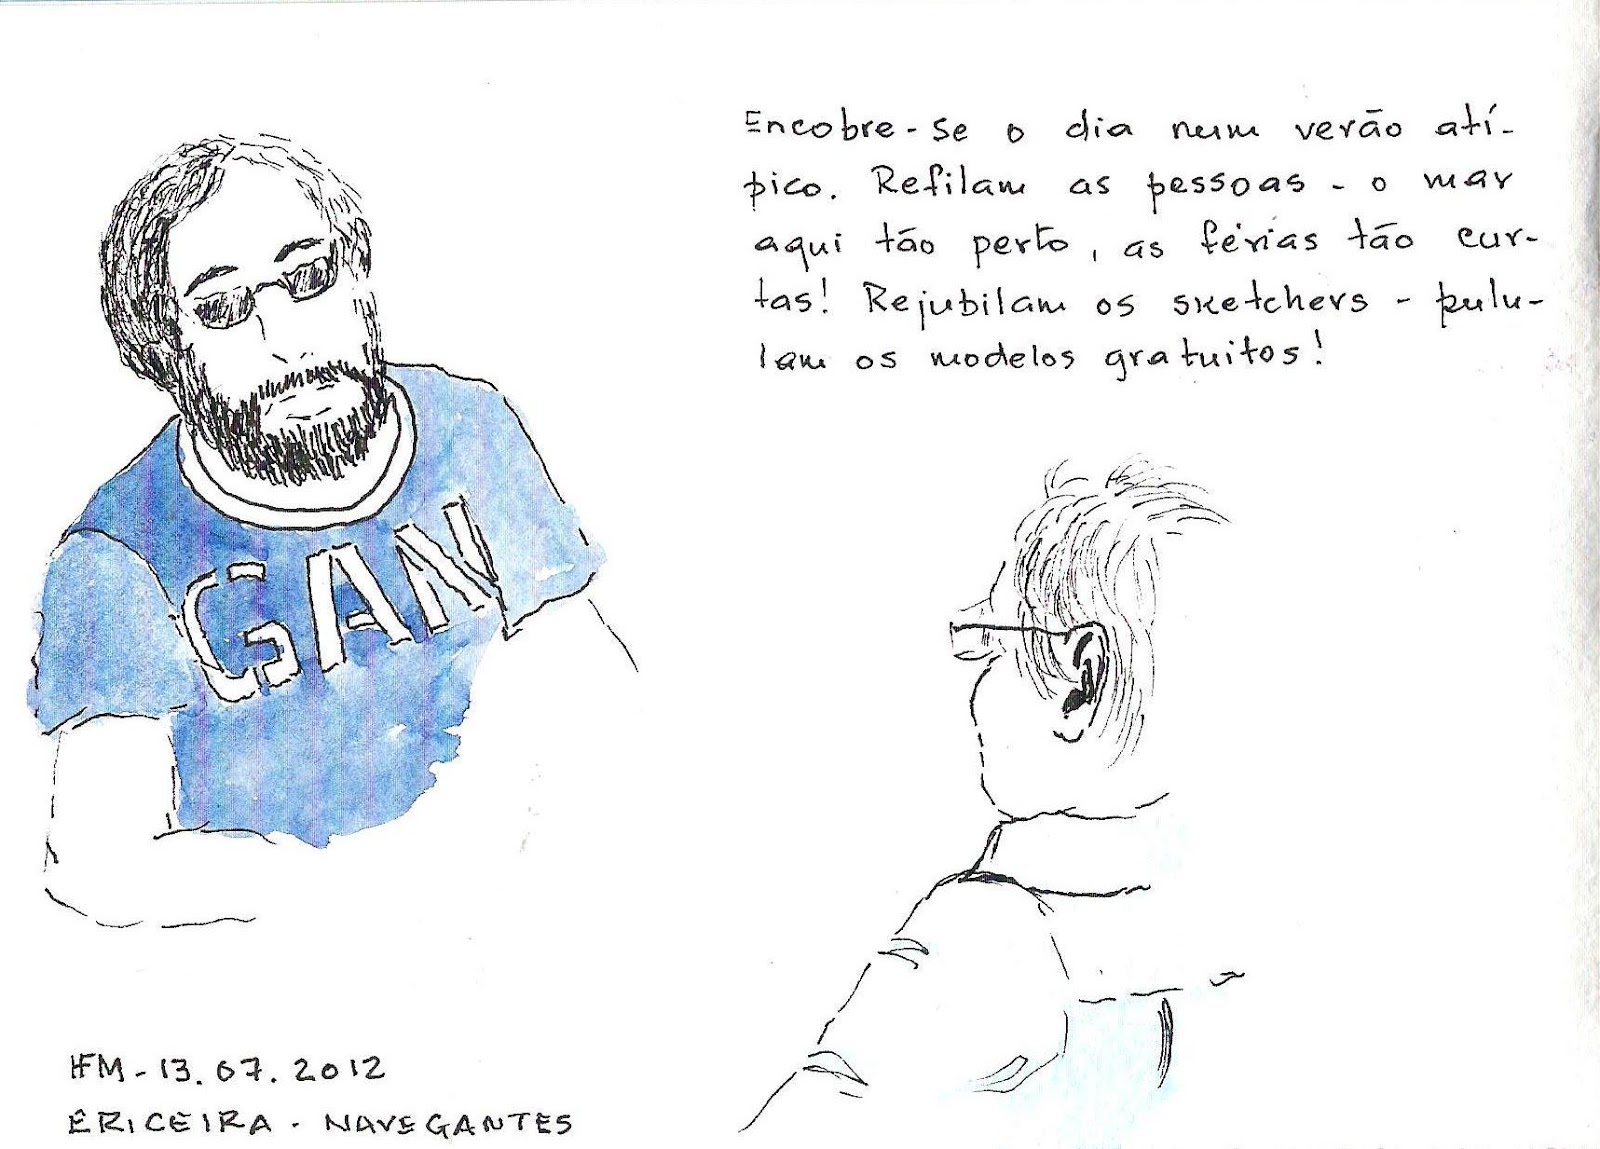 Encobre-se o dia num verão atí-
pico. Refilam as pessoas - o mar
aqui tão perto, as férias tão cur-
tas! Rejubilam os sketchers - pulu-
lam os modelos gratuitos!
GAN
HFM - 13.07.2012
ERICEIRA - NAVEGANTES